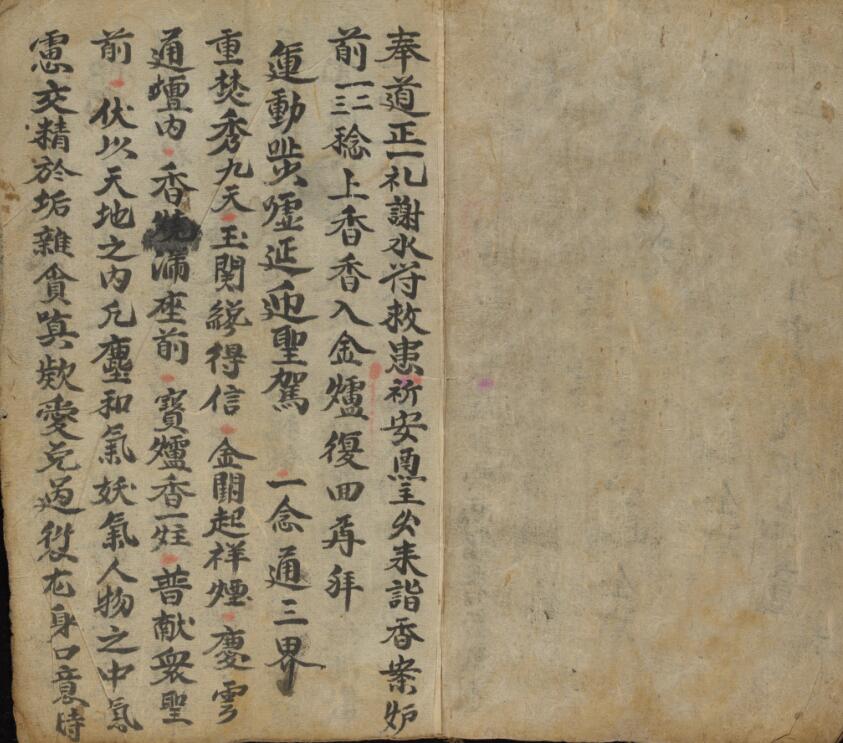 奉道正一礼謝水符救患祈安 主 来詣香案炉
前一二三稔上香香入金爐復回再拜
運動 噓延迎聖駕 一念通三界
重焚秀九天玉関 得信金闕起祥煙慶雲
通壇内香 满座前寳爐香一炷普献衆聖
前伏以天地之内凡塵和氣妖氣人物之中氣
 交精於垢雜貪嗔欺愛 過 身口意時